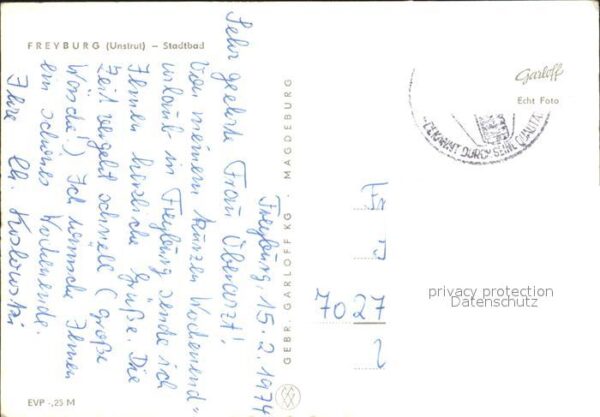 FREYBURG (Unstrut) – Stadtbad
Freyburg, 15.2.1974
Sehr geehrte Frau Oberarzt!
Von meinem kurzen Wochenend-
urlaub in Freyburg sende ich
Ihnen herzliche Grüße. Die
Zeit vergeht schnell (große
Wäsche!) Ich wünsche Ihnen
ein schönes Wochenende.
Ihre Ch. Koslowski
GEBR. GARLOFF KG · MAGDEBURG
EVP -,25 M
Garloff
Echt Foto
BEKANNT DURCH SEINE QUALITÄ
Fr
7027
privacy protection
Datenschutz